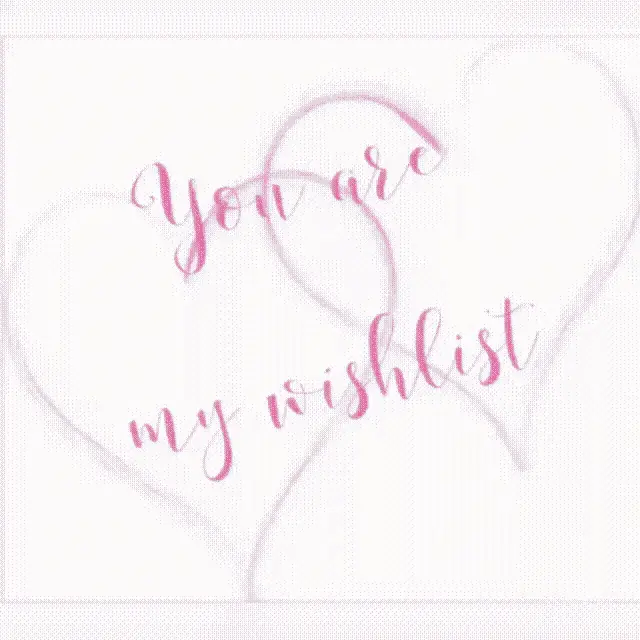 You are
my wishlist